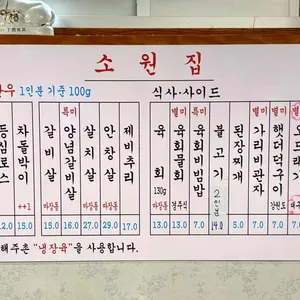 소원집
한우 1인분 기준 100g
식사·사이드
등심로스
차돌박이 ++1 15.0
갈비살 마장동 15.0
특미 양념갈비살 마장동 16.0
살치살 마장동 27.0
안창살 마장동 29.0
제비추리 17.0
육회 130g 마장동 13.0
별미 육회물회 경주식 13.0
특미 육회비빔밥
불고기 2인분 14.0
된장찌개 5.0
별미 가리비관자 7.0
별미 햇더덕구이 강원도 7.0
"냉장육"을 사용합니다.